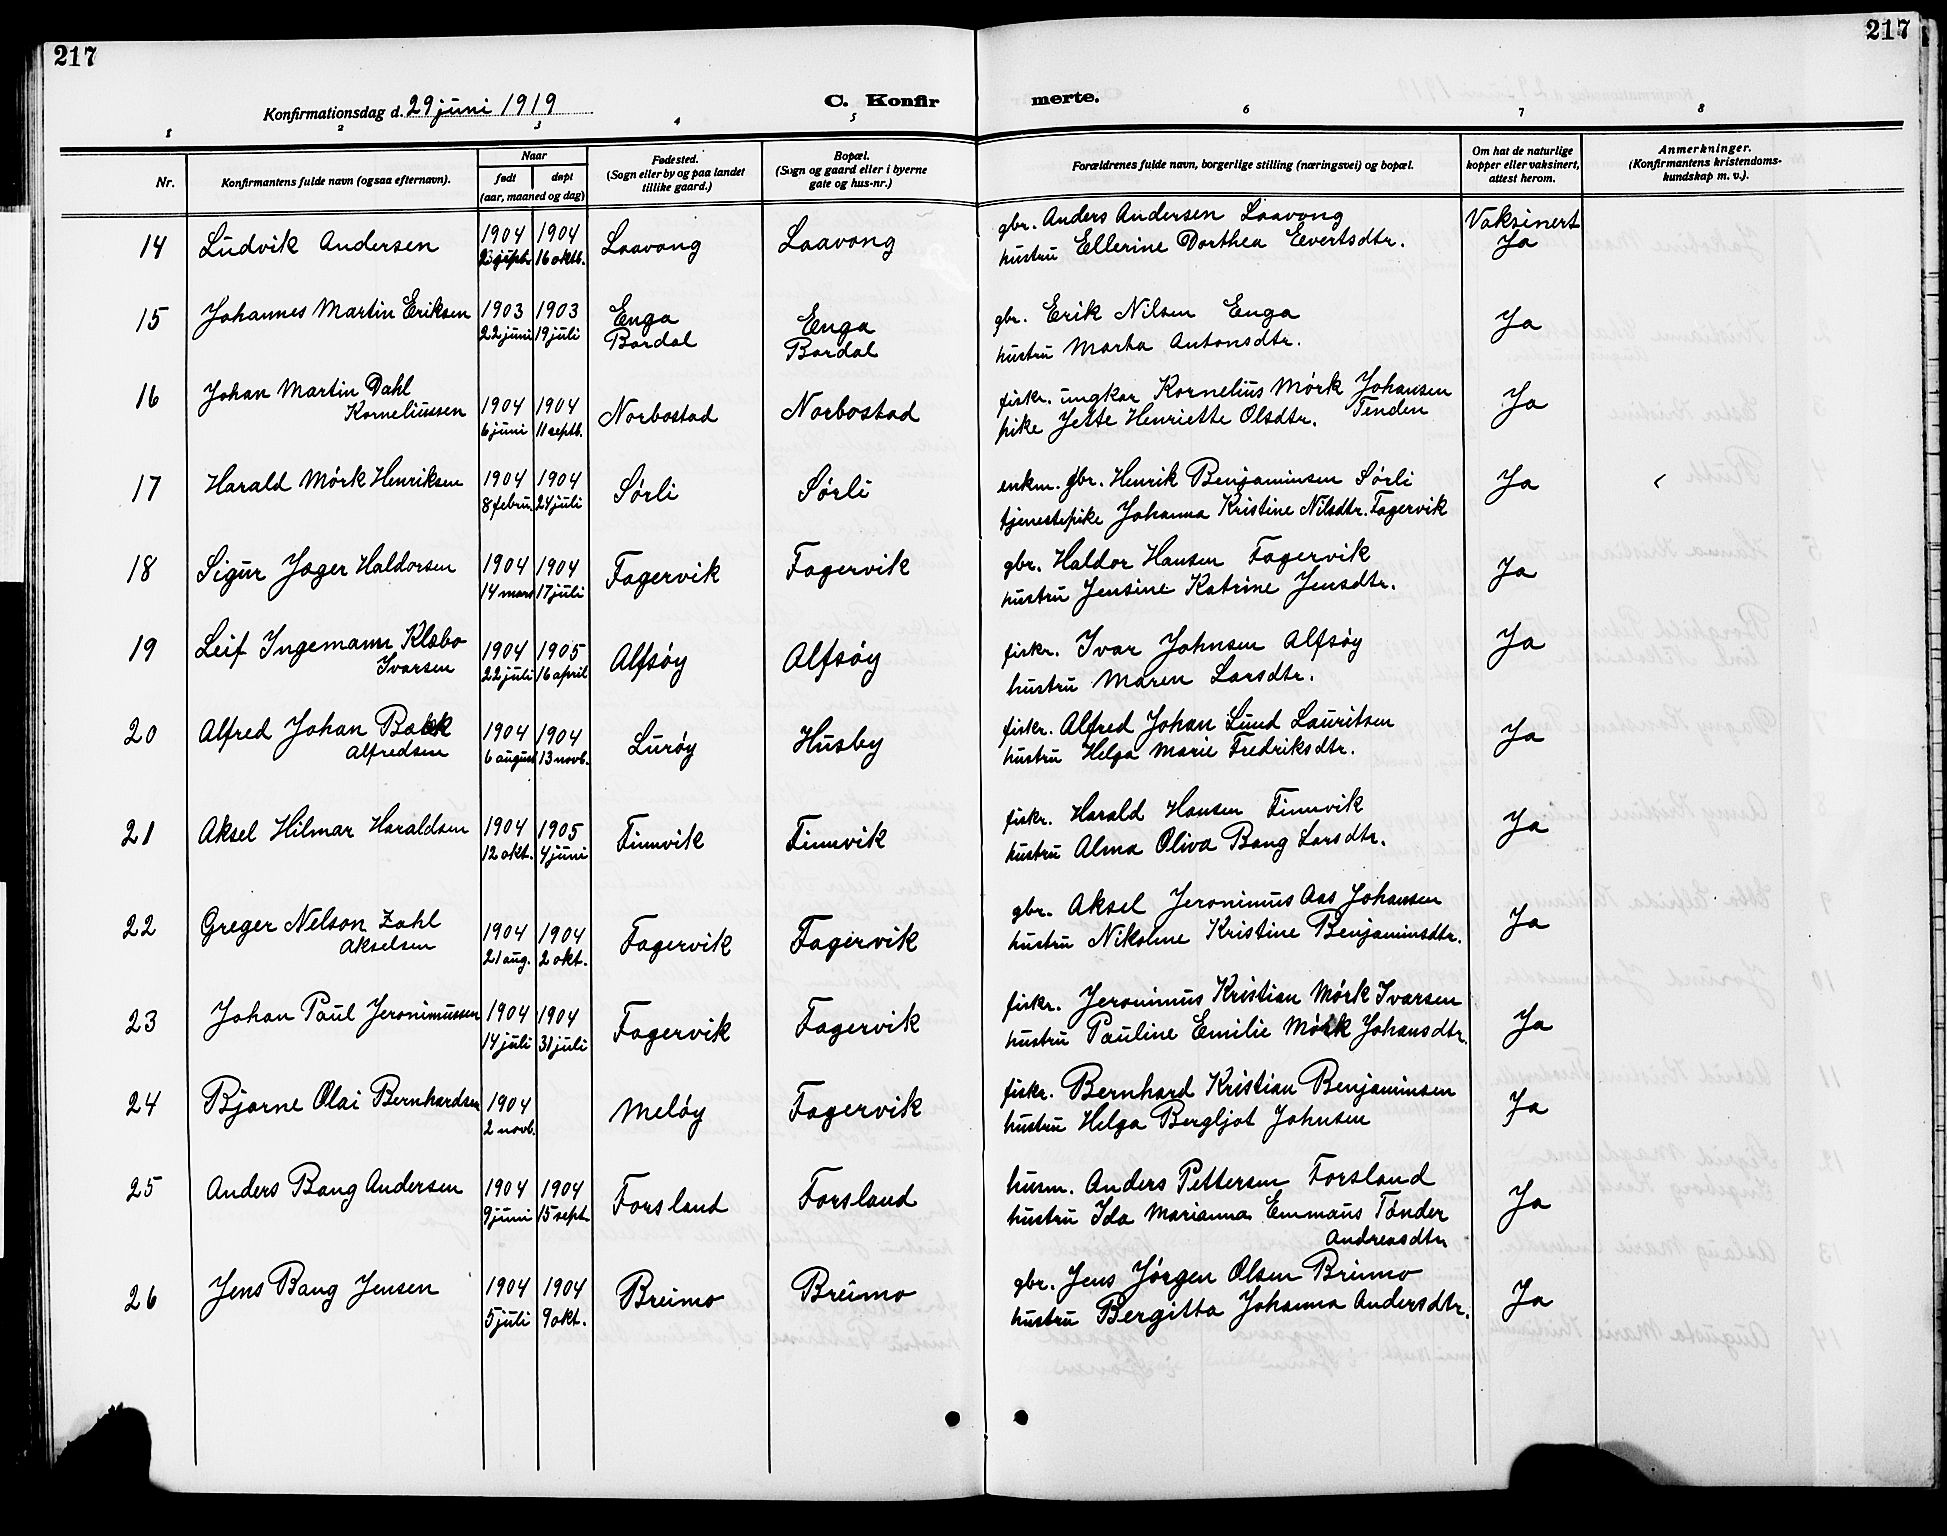 217
217
Konfirmationsdag d. 29 juni 1919
C. Konfir
merte.
1 2 3 4 5 6 7 8
Nr.
Konfirmantens fulde navn (ogsaa efternavn).
Naar
født
døpt
(aar, maaned og dag)
Fødested.
(Sogn eller by og paa landet
tillike gaard.)
Bopæl.
(Sogn og gaard eller i byerne
gate og hus-nr.)
Forældrenes fulde navn, borgerlige stilling (næringsvei) og bopæl.
Om hat de naturlige
kopper eller vaksinert,
attest herom.
Anmerkninger.
(Konfirmantens kristendoms-
kundskap m. v.).
14 Ludvik Andersen 1904 1904 Laavong Laavong gbr. Anders Andersen Laavong Vaksinert
septb. 16 oktb. hustru Ellerine Dorthea Evertsdtr. Ja
15 Johannes Martin Eriksen 1903 1903 Enga Enga gbr. Erik Nilsen Enga Ja
22 juni 19 juli Bardal Bardal hustru Marta Antonsdtr.
16 Johan Martin Dahl fiskr. ungkar Kornelius Mörk Johansen Ja
Korneliussen 1904 1904 Norbostad Norbostad pike Jette Henriette Olsdtr. Tenden
6 juni 11 septb.
17 Harald Mörk Henriksen 1904 1904 Sörli Sörli enkm. gbr. Henrik Benjaminsen Sörli Ja
8 febru. 24 juli tjenestepike Johanna Kristine Nilsdtr. Fagervik
18 Sigur Jager Haldorsen 1904 1904 Fagervik Fagervik gbr. Haldor Hansen Fagervik Ja
14 mars 17 juli hustru Jensine Katrine Jensdtr.
19 Leif Ingemann Klæbo 1904 1905 Alfsöy Alfsöy fiskr. Ivar Johnsen Alfsöy Ja
Ivarsen 22 juli 16 april hustru Maren Larsdtr.
20 Alfred Johan Bakk 1904 1904 Luröy Husby fiskr. Alfred Johan Lund Lauritsen Ja
Alfredsen 6 august 13 novb. hustru Helga Marie Fredriksdtr.
21 Aksel Hilmar Haraldsen 1904 1905 Finnvik Finnvik fiskr. Harald Hansen Finnvik Ja
12 okt. 4 juni hustru Alma Oliva Bang Larsdtr.
22 Greger Nelson Zahl gbr. Aksel Jeronimus Aas Johansen Ja
Akselsen 1904 1904 Fagervik Fagervik hustru Nikoline Kristine Benjaminsdtr.
21 aug. 2 okt.
23 Johan Paul Jeronimussen 1904 1904 Fagervik Fagervik fiskr. Jeronimus Kristian Mörk Ivarsen Ja
14 juli 31 juli hustru Pauline Emilie Mörk Johansdtr.
24 Bjarne Olai Bernhardsen 1904 Melöy Fagervik fiskr. Bernhard Kristian Benjaminsen Ja
2 novb. hustru Helga Bergljot Johnsen
25 Anders Bang Andersen 1904 1904 Forsland Forsland husm. Anders Pettersen Forsland Ja
9 juni 15 sept. hustru Ida Marianna Emmaus Tönder
Andreasdtr
26 Jens Bang Jensen 1904 1904 Breimo Breimo gbr. Jens Jörgen Olsen Breimo Ja
5 juli 9 okt. hustru Bergitta Johanna Andersdtr.